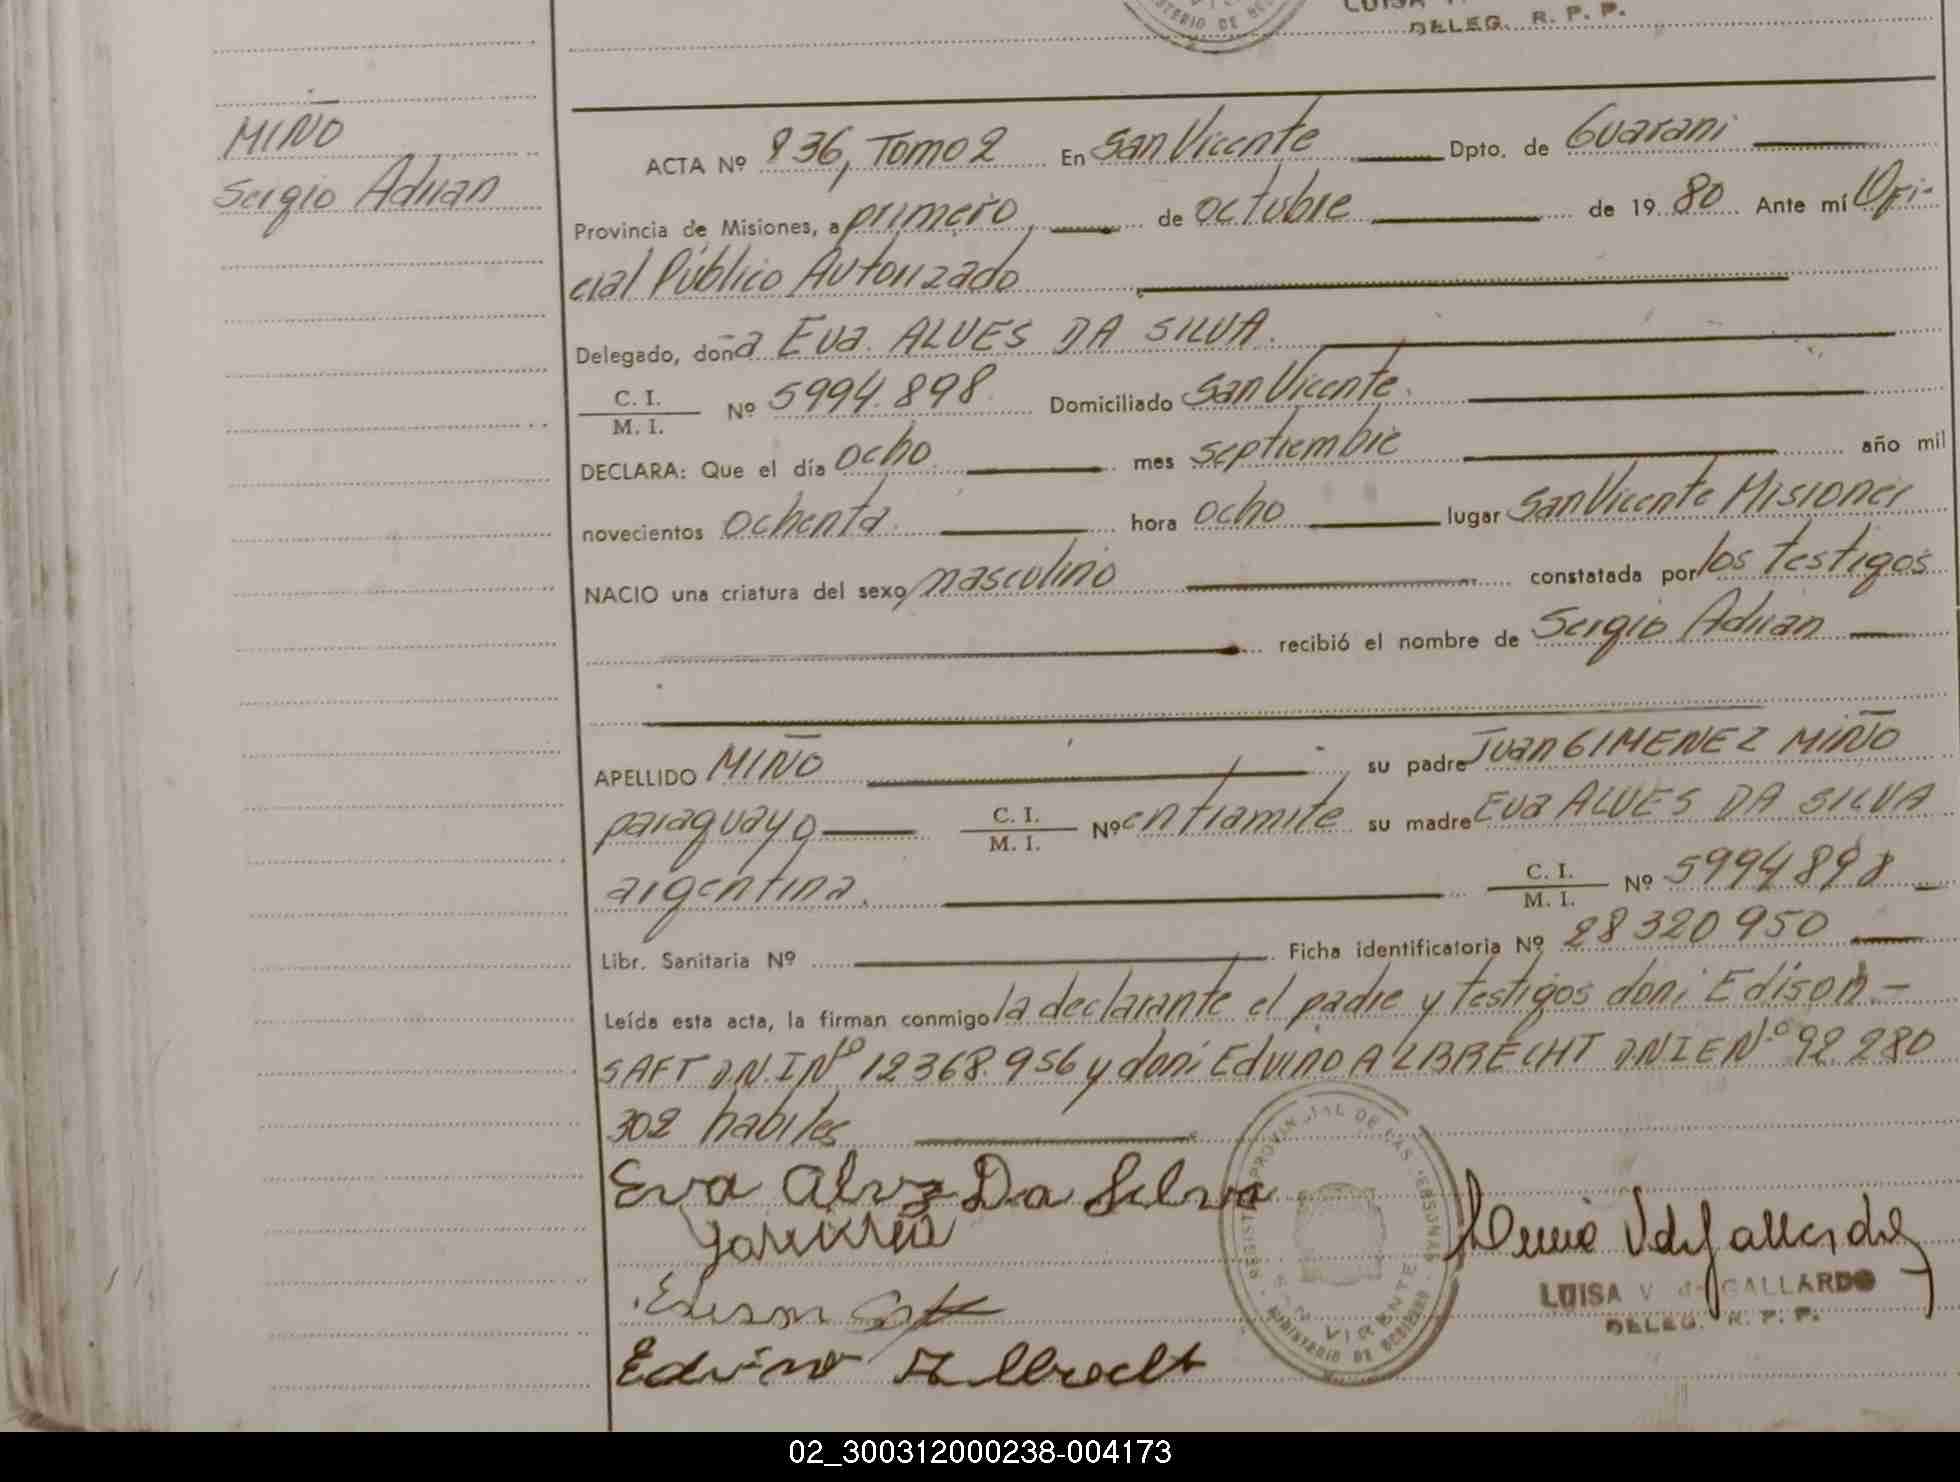 DELEG. R. P. P.
MIÑO
Sergio Adrian
ACTA Nº 836, Tomo 2 En San Vicente Dpto. de Guarani
Provincia de Misiones, a primero de octubre de 19 80 Ante mí Ofi-
cial Público Autorizado
Delegado, doña Eva ALVES DA SILVA.
C. I.
M. I. Nº 5994.898 Domiciliado San Vicente.
DECLARA: Que el día ocho mes septiembre año mil
novecientos ochenta hora ocho lugar San Vicente Misiones
NACIO una criatura del sexo masculino constatada por los testigos
recibió el nombre de Sergio Adrian
APELLIDO MIÑO su padre Juan GIMENEZ MIÑO
paraguayo C. I. M. I. Nº en tramite su madre Eva ALVES DA SILVA
argentina. C. I. M. I. Nº 5994898
Libr. Sanitaria Nº Ficha identificatoria Nº 28320950
Leída esta acta, la firman conmigo la declarante el padre y testigos don: Edison-
SAFT D.N.I Nº 12368.956 y don: Edvino ALBRECHT D.N.I E Nº 92 280
302 habiles
Eva Alvz Da Silva
Edvino Albrecht
REGISTRO PROVINCIAL DE LAS PERSONAS
SAN VICENTE
MINISTERIO DE GOBIERNO
LUISA V. de GALLARDO
DELEG. R. P. P.
02_300312000238-004173